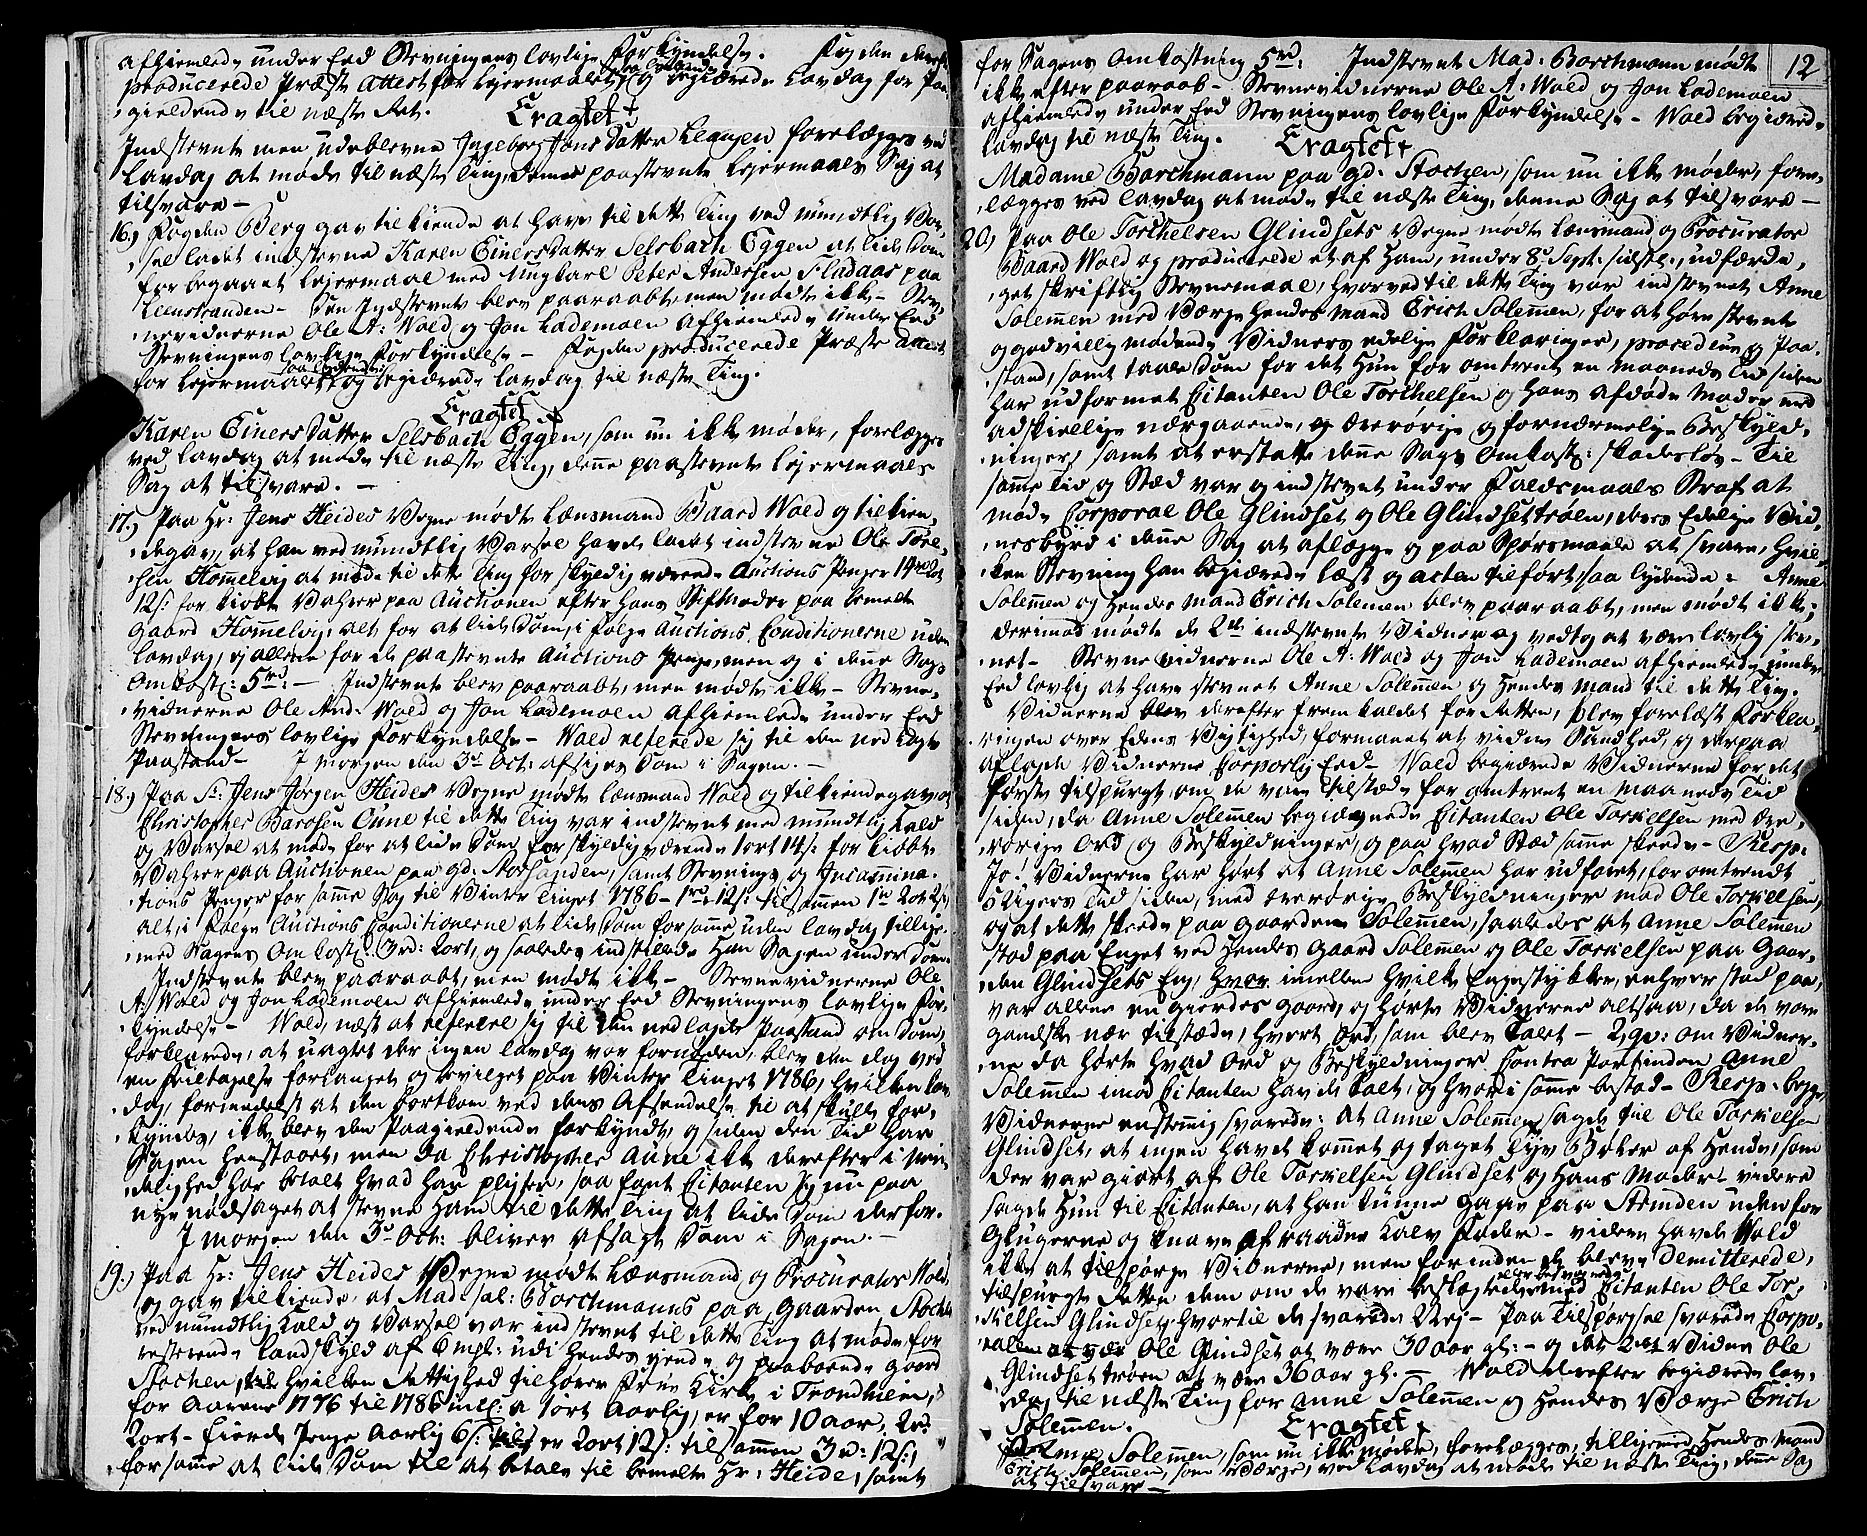 afhiemlede under Eed Stevningens lovlige Forkyndelse. Fogden derefter
producerede Præste Attest for Lejermaalet saa lydende og begiærede Lavdag for Paa-
gieldende til næste Ret. Eragtet
Indstevnte men udeblevne Ingeborg Jons Datter Leangen forelægges ved
Lavdag at møde til næste Ting, denne paastevnte Lejermaals Sag at
tilsvare -
16.) Fogden Berg gav tilkiende at have til dette Ting ved mundtlig Var-
sel ladet indstevne Karen Einersdatter Selsbach Eggen at lide Dom
for begaaet Lejermaal med Ungkarl Peter Andersen Fludaas paa
Leenstranden - Den Indstevnte blev paaraabt, men mødte ikke - Stev-
nevidnerne Ole A: Wold og Jon Lademoen afhiemlede under Eed
Stevningens lovlige Forkyndelse - Fogden producerede Præste Attest
for Lejermaalet saa lydende: og begiærede Lavdag til næste Ting.
Eragtet
Karen Einers Datter Selsbach Eggen, som nu ikke møder, forelægges
ved Lavdag at møde til næste Ting, denne paastevnte Lejermaals
Sag at tilsvare. -
17.) Paa Hr: Jens Heides Vegne mødte Lænsmand Baard Wold og tilkien-
degav, at han ved mundtlig Varsel havde ladet indstevne Ole Tore-
sen Hommelvig at møde til dette Ting for skyldig værende Auctions Penger
12 s: for kiøbte Vahrer paa Auctionen efter hans Stifmoder paa bemelte
Gaard Hommelvig, alt for at lide Dom, i følge Auctions Conditionerne uden
Lavdag, ej allene for de paastevnte Auctions Penge, men og i denne Sags
Omkostn: 5 rd: - Indstevnte blev paaraabt, men mødte ikke - Stevne-
vidnerne Ole And: Wold og Jon Lademoen afhiemlede under Eed
Stevningens lovlige Forkyndelse - Wold refererede sig til den nedlagte
Paastand - I morgen den 3de Oct: afsiges Dom i Sagen. -
18.) Paa Sr: Jens Jørgen Heides Vegne mødte Lænsmand Wold og tilkiendegav at
Christopher Barosen Aune til dette Ting var indstevnt med mundtlig Kald
og Varsel at møde for at lide Dom for skyldigværende 1 ort 14 s: for kiøbte
Vahrer paa Auctionen paa gd: Storsanden, samt Stevnings og Incamina-
tions Penger for samme Sag til Vinter Tinget 1786 - 1 rd 12 s: tilsammen 1 rd 2 ort 2 s:
alt, i følge Auctions Conditionerne at lide Dom for samme uden Lavdag tillige-
med Sagens Omkostn: 3 rd: 2 ort, og saaledes indstillede Han Sagen under Dom -
Indstevnte blev paaraabt, men mødte ikke - Stevnevidnerne Ole
A: Wold og Jon Lademoen afhiemlede under Eed Stevningens lovlige For-
kyndelse - Wold, næst at referere sig til den nedlagte Paastand om Dom,
forklarede, at uagtet der ingen Lavdag var fornøden, blev den dog ved
en Feiltagelse forlanget og bevilget paa Vinter Tinget 1786, hvilken Lav-
dag, formedelst at den bortkom ved dens Afsendelse til at skulle for-
kyndes, ikke blev den Paagieldende forkyndt, og siden den Tid har
Sagen henstaaet, men da Christopher Aune ikke derefter i Min-
delighed har betalt hvad han pligter, saa fant Citanten sig nu paa
nye nødsaget at stevne Ham til dette Ting at lide Dom derfor.
I morgen den 3de Oct: bliver afsagt Dom i Sagen. -
19.) Paa Hr: Jens Heides Vegne mødte Lænsmand og Procurator Wold,
og gav tilkiende, at Mad: sal: Borchmanns paa Gaarden Stochen
ved mundtlig Kald og Varsel var indstevnt til dette Ting at møde for
resterende Landskyld af 6 mpl: udi Hendes ejende og paaboende Gaard
Stochen, hvilken Rettighed tilhører Frue Kirke i Trondhiem,
for Aarene 1776 til 1786 incl: a 1 ort Aarlig, er for 10 aar, 2 rd
2 ort - Fierde Penge Aarlig 6 s: er 2 ort 12 s: tilsammen 3 rd: 12 s:,
for samme at lide Dom til at betale til bemelte Hr: Heide, samt
12
for Sagens Omkostning 5 rd: Indstevnte Mad: Borchmann mødte
ikke efter paaraab - Stevnevidnerne Ole A: Wold og Jon Lademoen
afhiemlede under Eed Stevningens lovlige Forkyndelse - Wold begiærede
Lavdag til næste Ting. Eragtet
Madame Borchmann paa gd: Stochen, som nu ikke møder, fore-
lægges ved Lavdag at møde til næste Ting, denne Sag at tilsvare -
20.) Paa Ole Torchelsen Glindsets Vegne mødte Lænsmand og Procurator
Baard Wold og producerede et af Ham, under 8de Sept: sidstl:, udfærdi-
get skriftlig Stevnemaal, hvorved til dette Ting var indstevnt Anne
Solemen med Værge hendes Mand Erich Solemen, for at høre stevnte
og godvillig mødende Vidners edelige Forklaringer, procedure og Paa-
stand, samt taale Dom for det Hun for omtrent en Maaneds Tid siden
har udformet Citanten Ole Torchelsen og Hans afdøde Moder med
adskiellige nærgaaende, ærerørige og fornærmelige Beskyld-
ninger, samt at erstatte denne Sags Omkostn: skadesløs - Til
samme Tid og Stæd var og indstevnt under Faldsmaals Straf at
møde Corporal Ole Glindset og Ole Glindsettrøen, deres Edelige Vid-
nesbyrd i denne Sag at aflægge og paa Spørsmaale at svare, hvil-
ken Stevning han begiærede læst og acten tilført, saa lydende: Anne
Solemen og Hendes Mand Erich Solemen blev paaraabt, men mødte ikke;
derimod mødte de 2de indstevnte Vidner og vedtog at være lovlig stev-
net - Stevnevidnerne Ole A: Wold og Jon Lademoen afhiemlede under
Eed lovlig at have stevnet Anne Solemen og Hendes Mand til dette Ting.
Vidnerne blev derefter fremkaldet for Retten, blev forelæst Forkla-
ringen over Edens Vigtighed, formanet at vidne Sandhed, og derpaa
aflagde Vidnerne Corporlig Eed - Wold begiærede Vidnerne for det
første tilspurgt, om de vare tilstæde for omtrent en Maaneds Tid
siden, da Anne Solemen begiegnede Citanten Ole Torkelsen med ære-
rørige Ord og Beskyldninger, og paa hvad Stæd samme skeede - Resp:
Jo! Vidnerne har hørt at Anne Solemen har udforet, for omtrendt
5 Ugers Tid siden, med ærerørige Beskyldninger mod Ole Torkielsen,
og at dette skeede paa Gaarden Solemen, saaledes at Anne Solemen
stod paa Enget ved Hendes Gaard Solemen og Ole Torkielsen paa Gaar-
den Glindsets Eng, hvor imellem hvilke Engestykker, enhver stod paa,
var allene en Gierdes Gaard, og hørte Vidnerne altsaa, da de vare
gandske nær tilstæde, hvert Ord, som blev talet - 2 qv: om Vidner-
ne da hørte hvad Ord og Beskyldninger Contra Partinden Anne
Solemen imod Citanten havde talet, og hvori samme bestod - Resp: begge
Vidnerne eenstemmig svarede: at Anne Solemen sagde til Ole Torkielsen
Glindset, at ingen havde kommet og taget Tyv Bøker af Hende, som
der var giort af Ole Torkielsen Glindset og Hans Moder - videre
sagde Hun til Citanten, at han kunne gaae paa Strinden uden for
Glugerne og knave af raadne Kalv Foder - videre havde Wold
ikke at tilspørge Vidnerne, men forinden de bleve demitterede,
tilspurgte Retten dem om de vare beslægtede eller besvogrede med Citanten Ole Tor-
kielsen Glindset, hvortil de svarede Nej - Paa Tilspørgsel svarede Corpo-
ralen Ole Glindset at være 30 aar gl: - og det 2det Vidne Ole
Glindsettrøen at være 36 aar gl. - Wold derefter begiærede Lav-
dag til næste Ting for Anne Solemen og Hendes Værge Erich
Solemen. Eragtet
Anne Solemen, som nu ikke møder, forelægges, tilligemed Hendes Mand
Erich Solemen, som Værge, ved Lavdag at møde til næste Ting, denne Sag
at tilsvare -